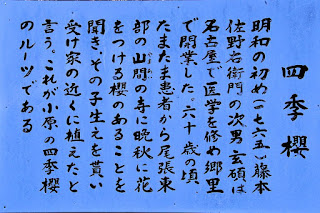 四季櫻
明和の初め(一七六五)藤本
佐野右衛門の次男玄碩は
名古屋で医学を修め郷里
で開業した。六十歳の頃
たまたま患者から尾張東
部の山間の寺に晩秋に花
をつける櫻のあることを
聞き、その子生えを貰い
受け家の近くに植えたと
言う。これが小原の四季櫻
のルーツである